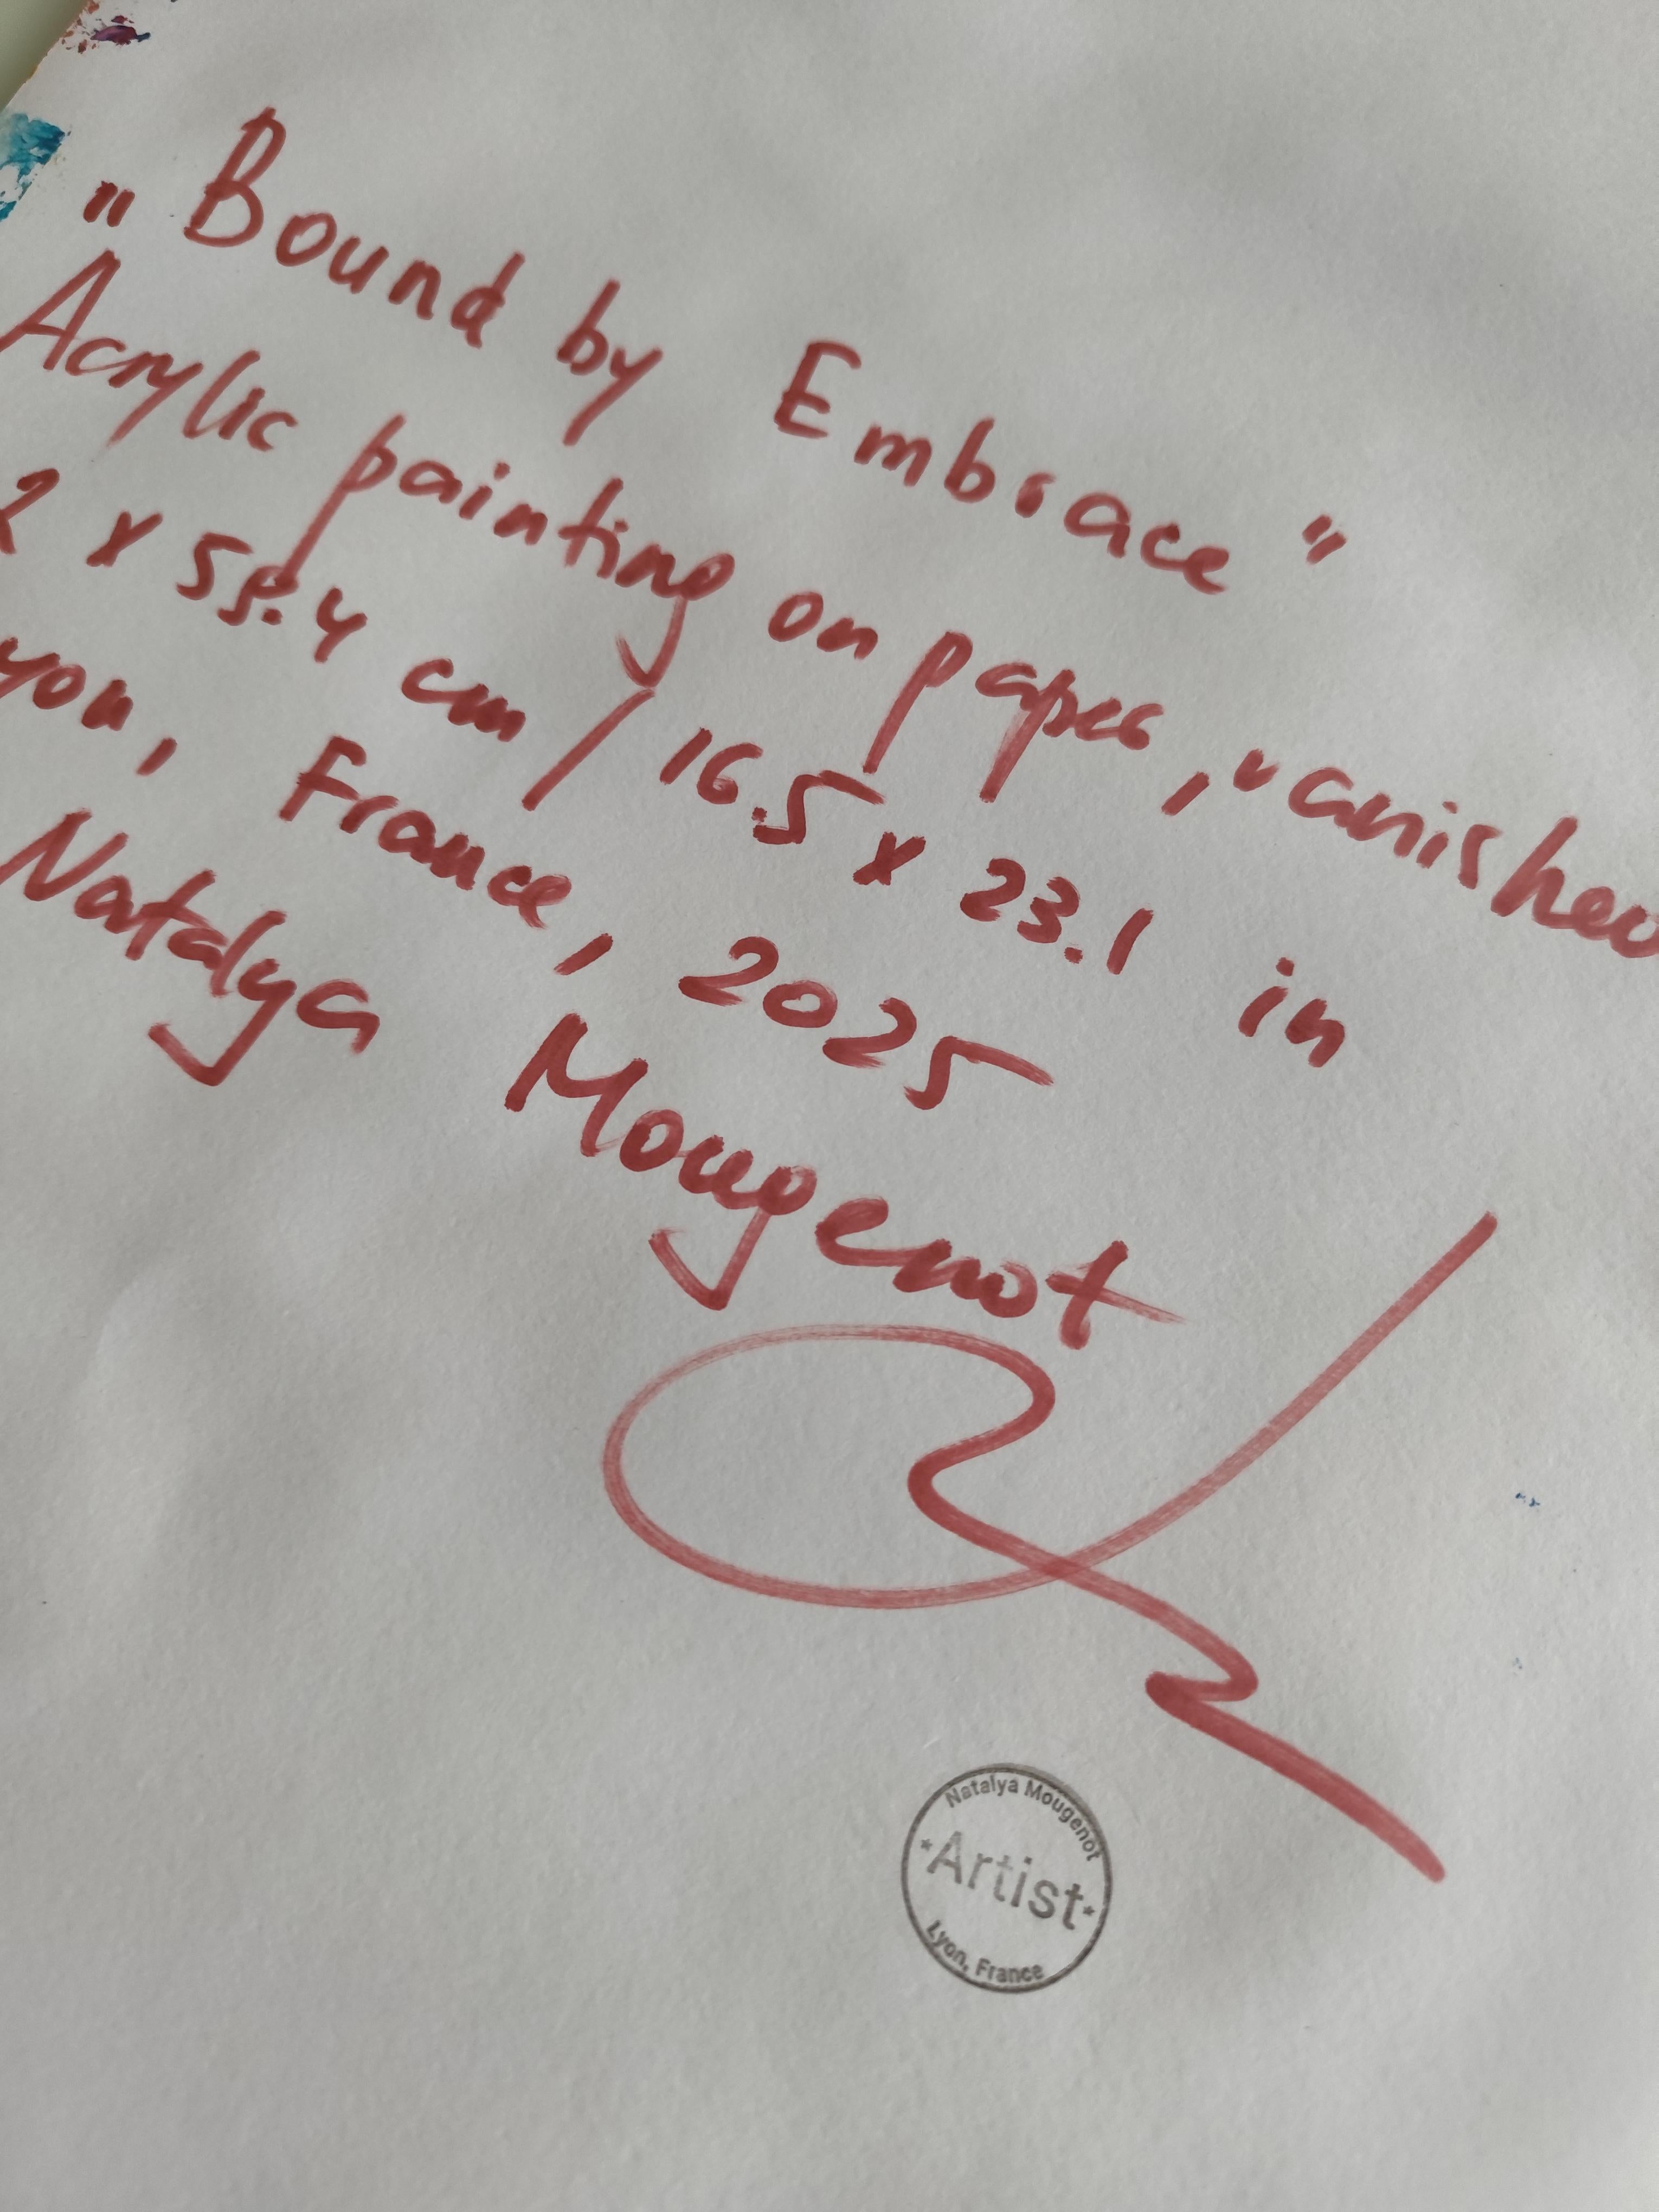 "Bound by Embrace"
Acrylic painting on paper, varnished
2 x 58.4 cm / 16.5 x 23.1 in
yon, France, 2025
Natalya Mougenot
Natalya Mougenot
*Artist*
Lyon, France